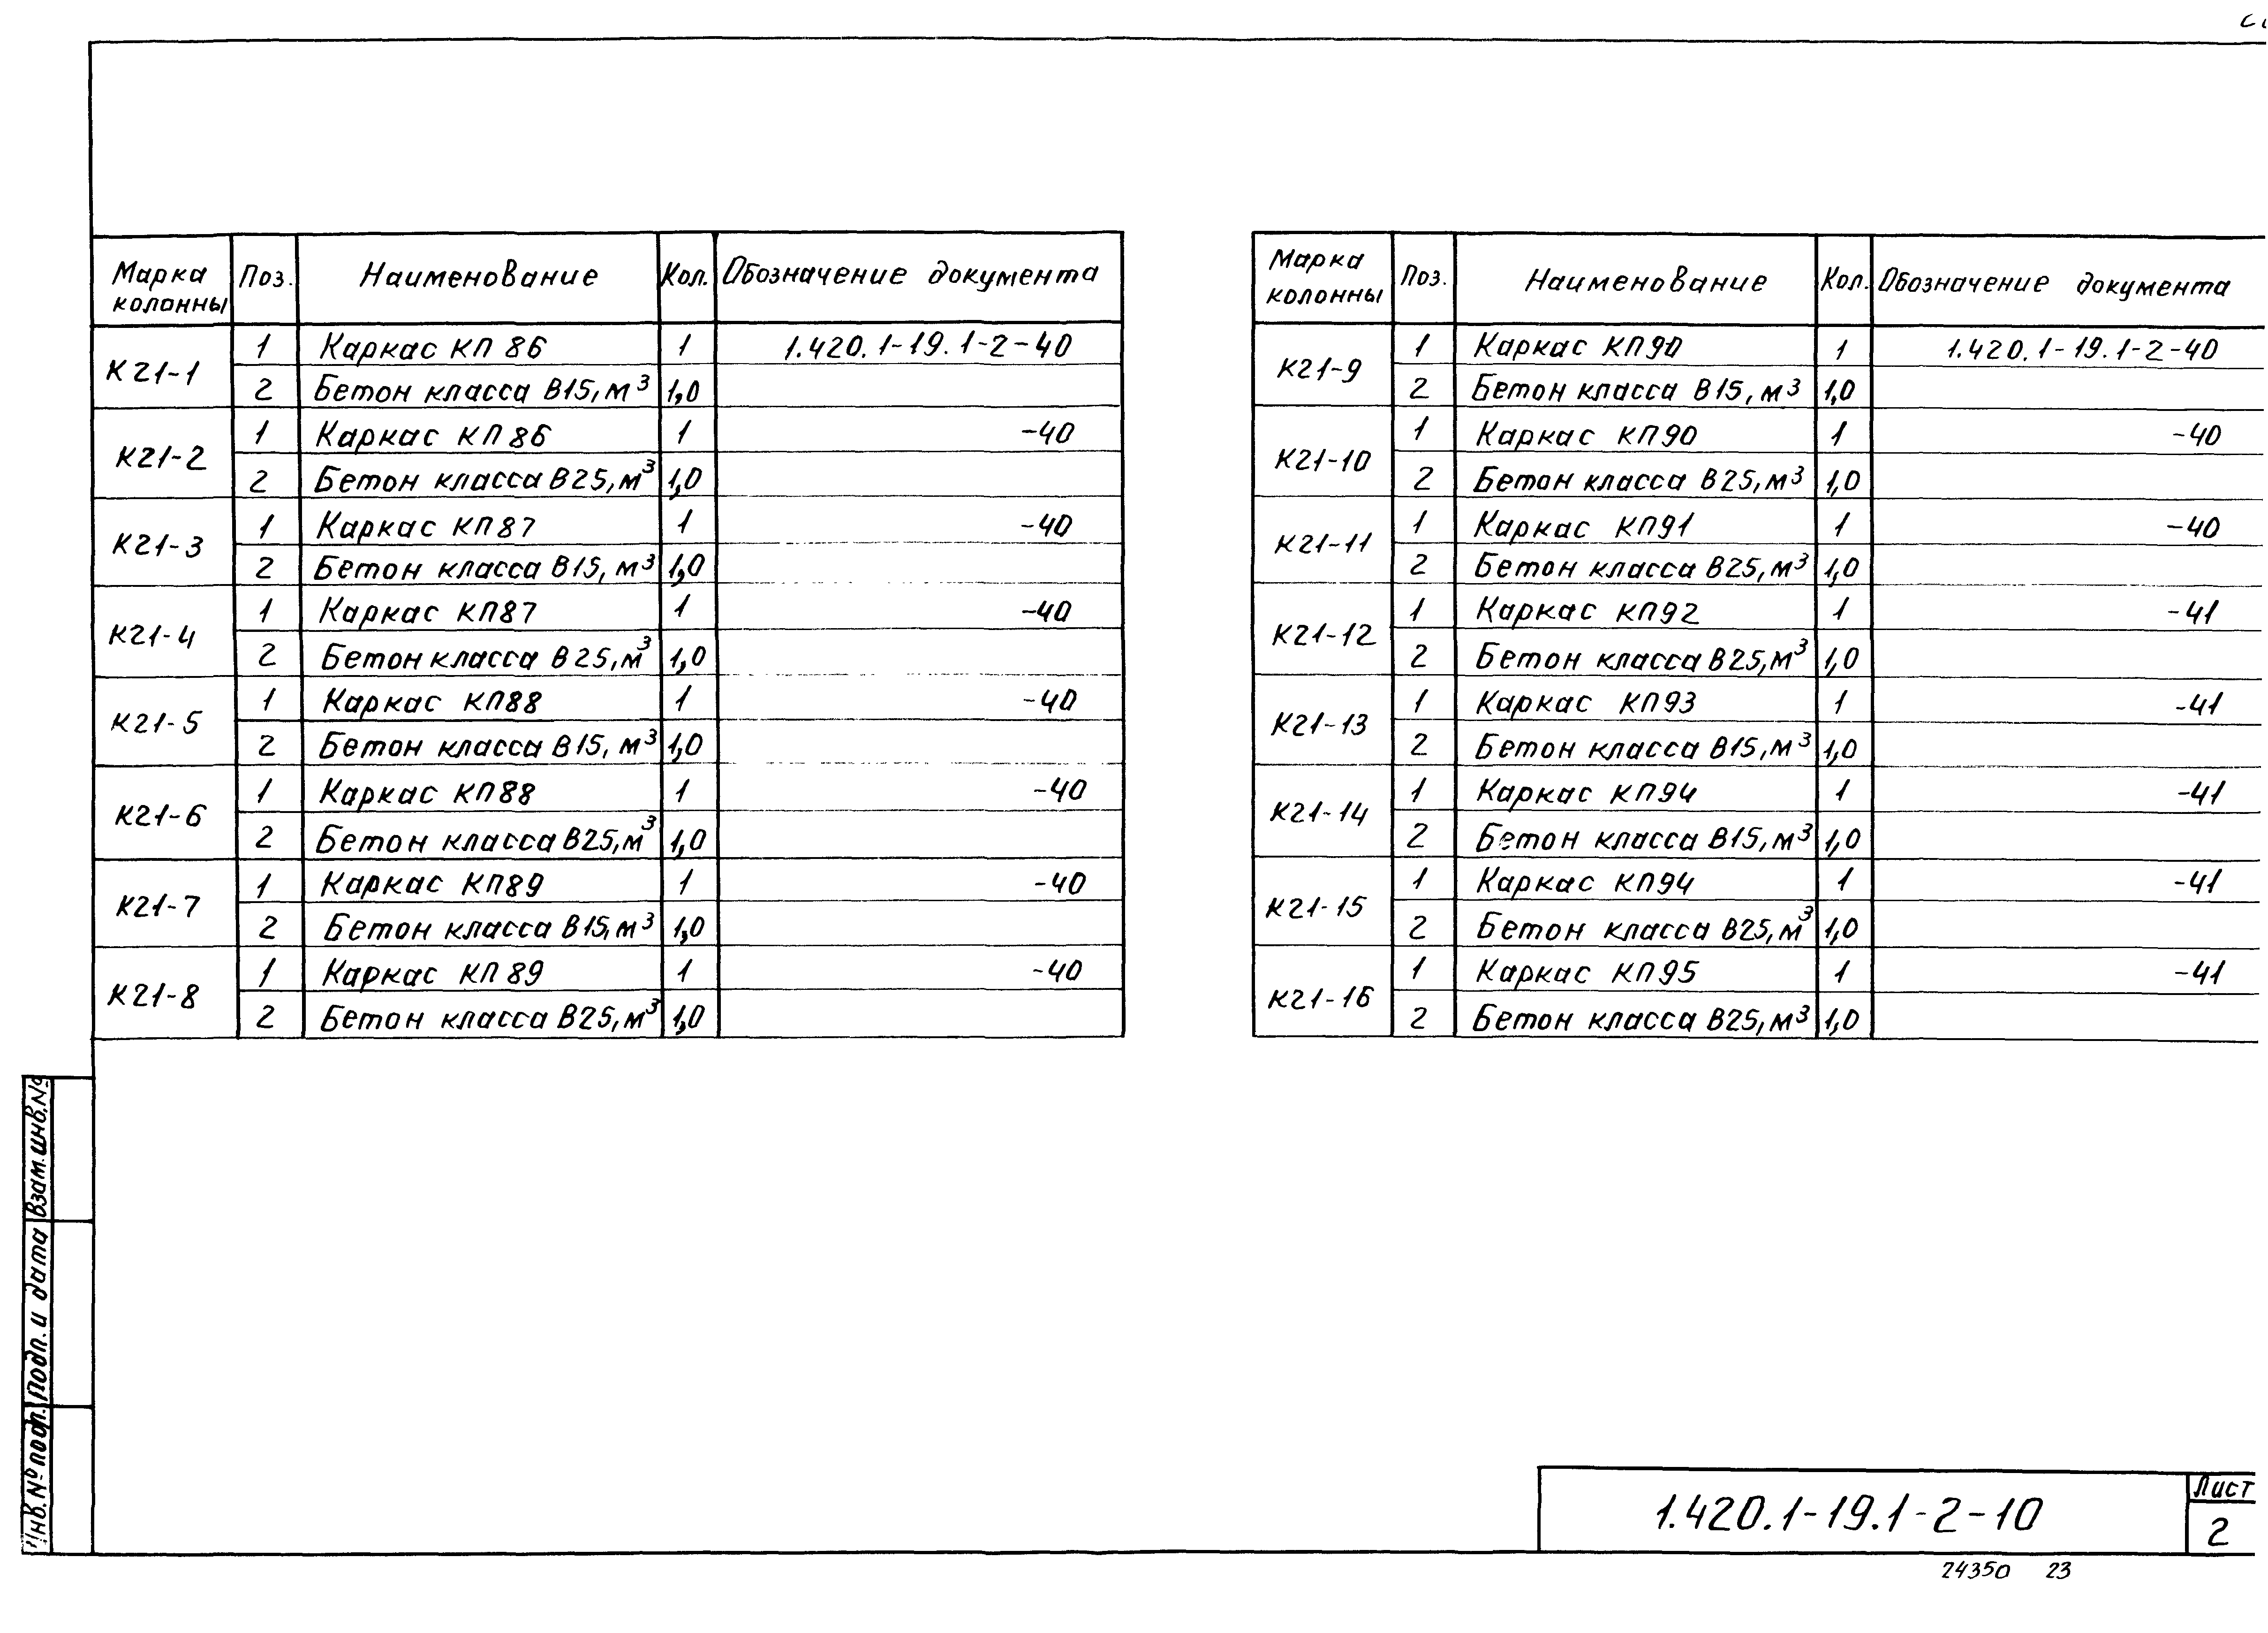 Марка колонны Поз. Наименование Кол. Обозначение документа
К21-1 1 Каркас КП 86 1 1.420.1-19.1-2-40
2 Бетон класса В15, м³ 1,0
К21-2 1 Каркас КП86 1 -40
2 Бетон класса В25, м³ 1,0
К21-3 1 Каркас КП87 1 -40
2 Бетон класса В15, м³ 1,0
К21-4 1 Каркас КП87 1 -40
2 Бетон класса В25, м³ 1,0
К21-5 1 Каркас КП88 1 -40
2 Бетон класса В15, м³ 1,0
К21-6 1 Каркас КП88 1 -40
2 Бетон класса В25, м³ 1,0
К21-7 1 Каркас КП89 1 -40
2 Бетон класса В15, м³ 1,0
К21-8 1 Каркас КП89 1 -40
2 Бетон класса В25, м³ 1,0
Марка колонны Поз. Наименование Кол. Обозначение документа
К21-9 1 Каркас КП90 1 1.420.1-19.1-2-40
2 Бетон класса В15, м³ 1,0
К21-10 1 Каркас КП90 1 -40
2 Бетон класса В25, м³ 1,0
К21-11 1 Каркас КП91 1 -40
2 Бетон класса В25, м³ 1,0
К21-12 1 Каркас КП92 1 -41
2 Бетон класса В25, м³ 1,0
К21-13 1 Каркас КП93 1 -41
2 Бетон класса В15, м³ 1,0
К21-14 1 Каркас КП94 1 -41
2 Бетон класса В15, м³ 1,0
К21-15 1 Каркас КП94 1 -41
2 Бетон класса В25, м³ 1,0
К21-16 1 Каркас КП95 1 -41
2 Бетон класса В25, м³ 1,0
Взам.инв.№
Подп. и дата
Инв.№ подл.
1.420.1-19.1-2-10
Лист
2
24350 23